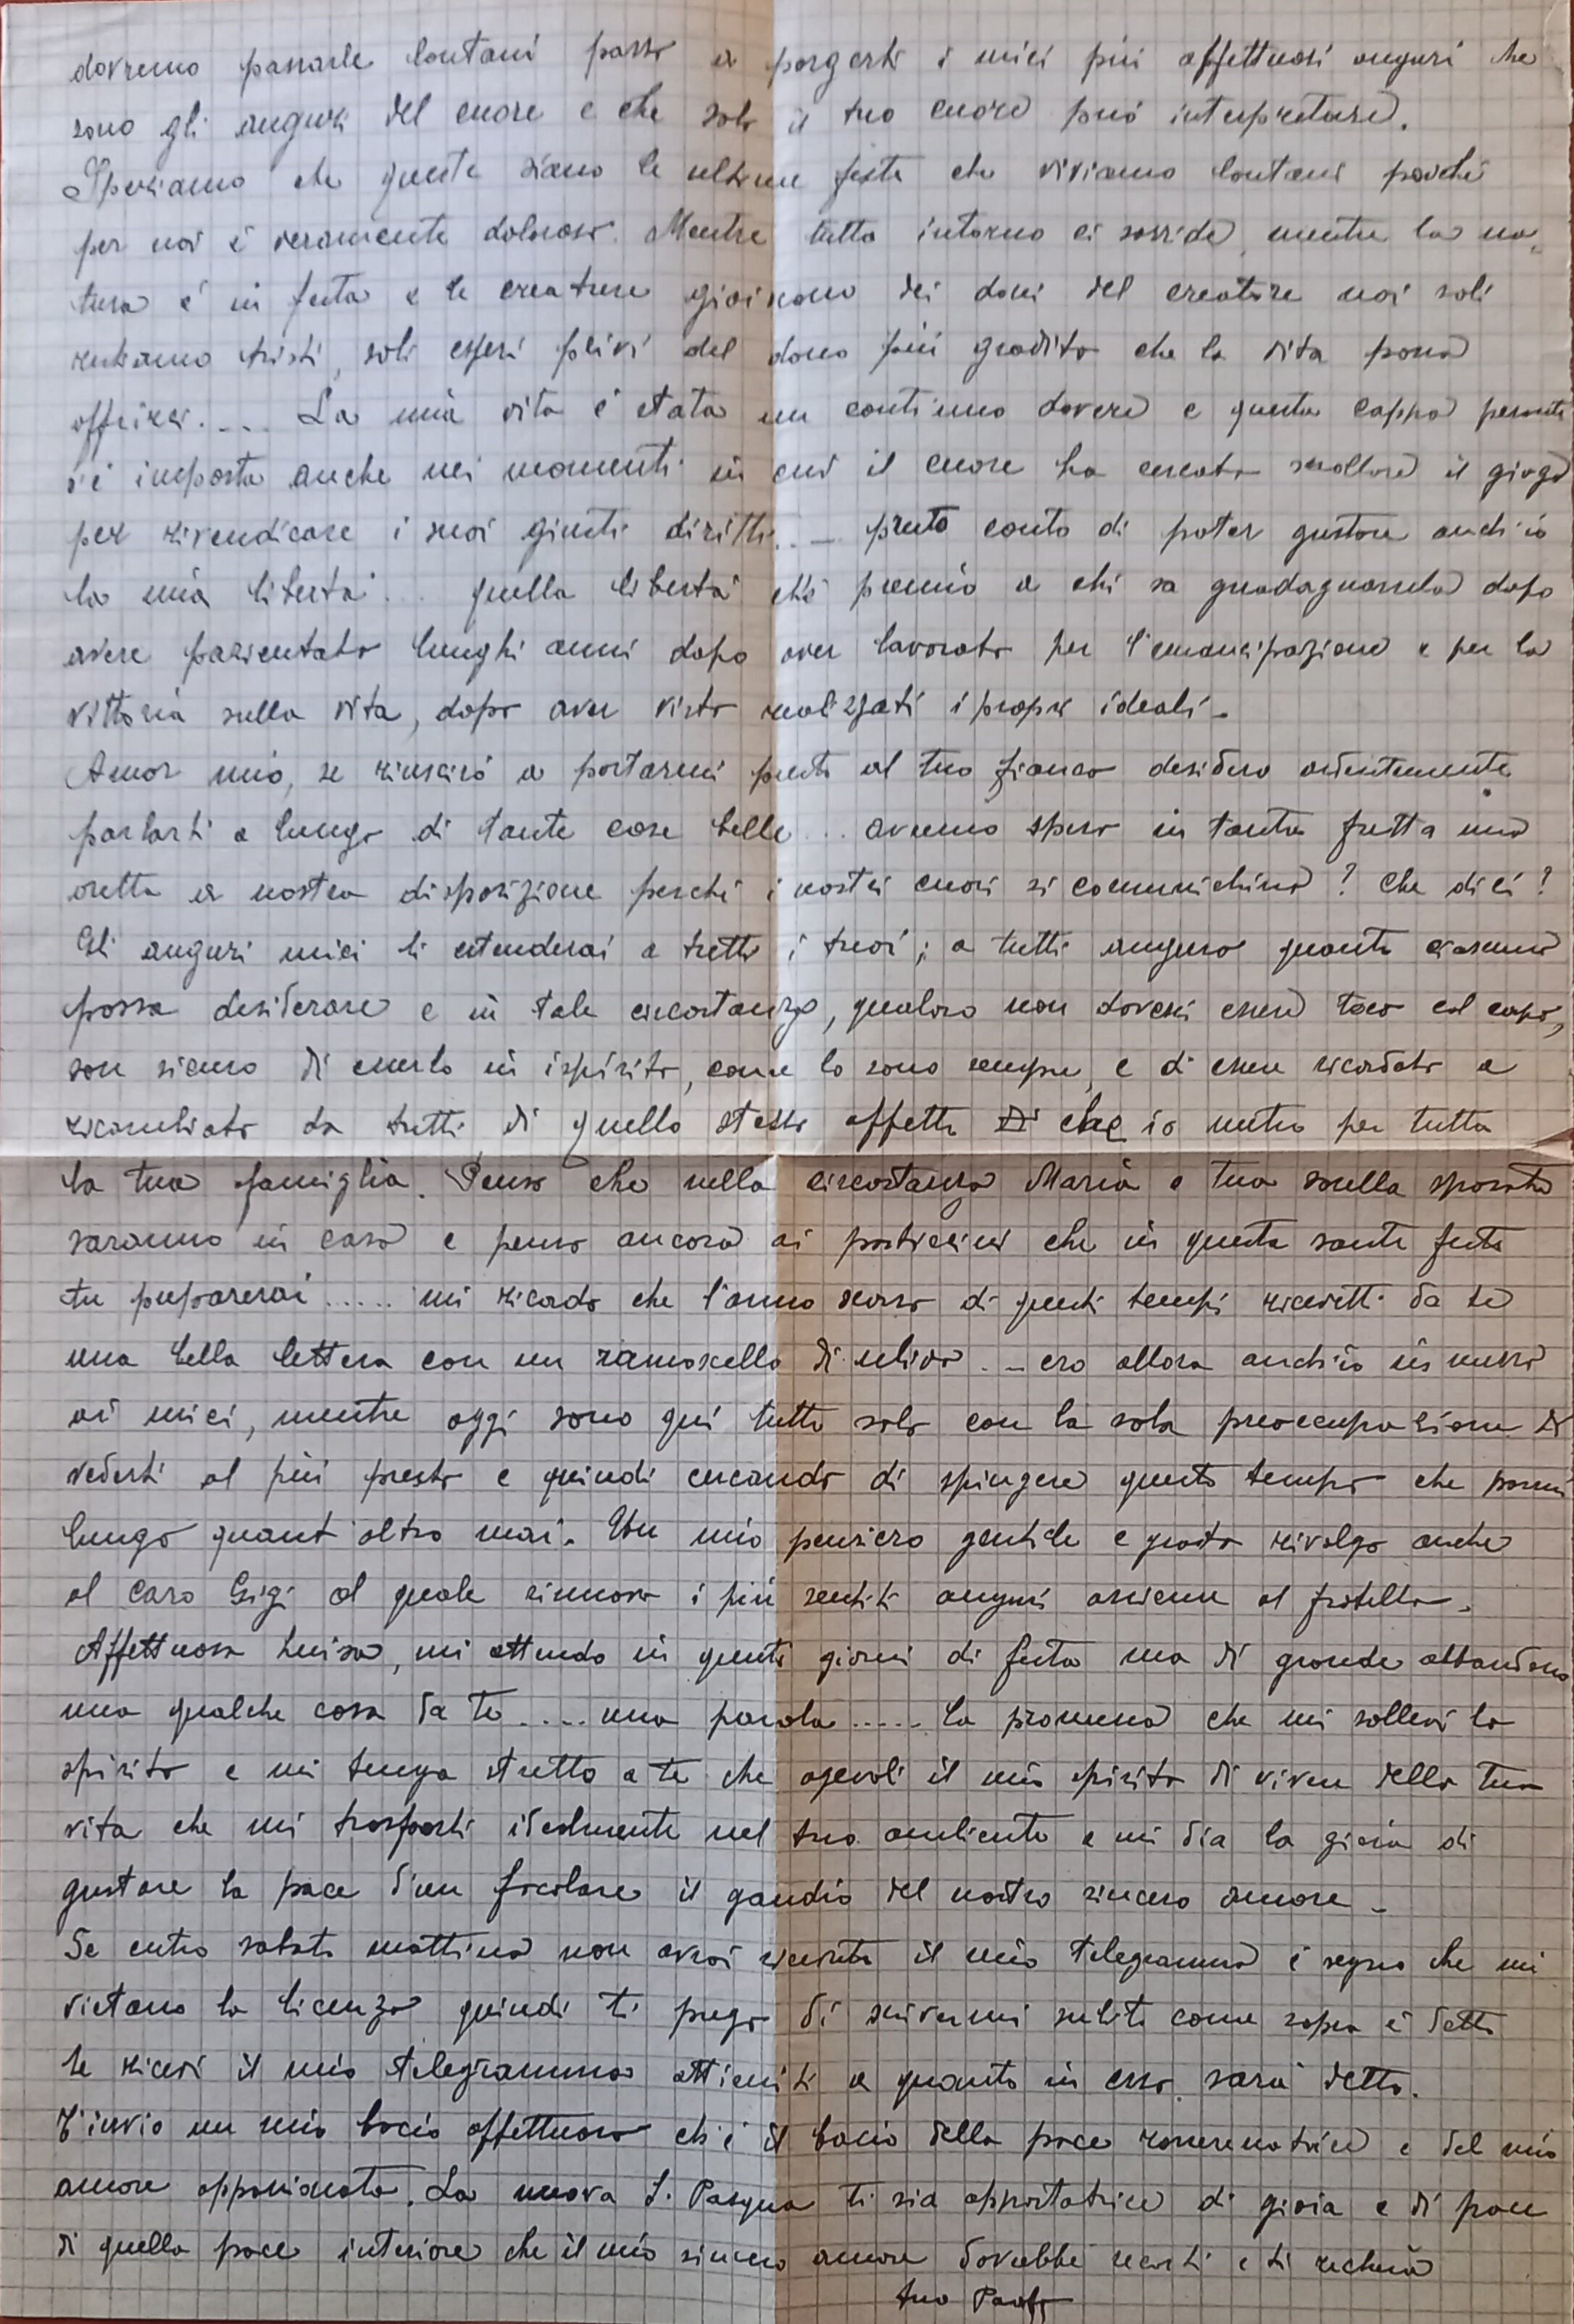 dovremo passarle lontani passo a porgerti i miei più affettuosi auguri che
sono gli auguri del cuore e che solo il tuo cuore può interpretare.
Speriamo che queste siano le ultime feste che viviamo lontani poiché
per noi è veramente doloroso. Mentre tutto intorno ci sorride, mentre la na-
tura è in festa e le creature gioiscono dei doni del creatore noi soli
restiamo tristi, soli esseri privi del dono più gradito che la vita possa
offrirci.... La mia vita è stata un continuo dovere e questa cappa pesante
s'è imposta anche nei momenti in cui il cuore ha cercato scrollare il giogo
per rivendicare i suoi giusti diritti... presto conto di poter gustare anch'io
la mia libertà... quella libertà ch'è premio a chi sa guadagnarsela dopo
avere pazientato lunghi anni dopo aver lavorato per l'emancipazione e per la
vittoria sulla vita, dopo aver visto realizzati i propri ideali.
Amor mio, se riuscirò a portarmi presto al tuo fianco desidero ardentemente
parlarti a lungo di tante cose belle... avremo spero in tanta fretta una
oretta a nostra disposizione perché i nostri cuori si comunichino? Che dici?
Gli auguri miei li estenderai a tutti i tuoi; a tutti auguro quanto ciascuno
possa desiderare e in tale circostanza, qualora non dovessi essere teco col corpo,
son sicuro di esserlo in ispirito, come lo sono sempre, e di essere ricordato e
ricambiato da tutti di quello stesso affetto che io nutro per tutta
la tua famiglia. Penso che nella circostanza Maria e tua sorella sposata
saranno in casa e penso ancora ai pasticcini che in queste sante feste
tu preparerai..... mi ricordo che l'anno scorso di questi tempi ricevetti da te
una bella lettera con un ramoscello di ulivo... ero allora anch'io in mezzo
ai miei, mentre oggi sono qui tutto solo con la sola preoccupazione di
vederti al più presto e quindi cercando di spingere questo tempo che parmi
lungo quant'altro mai. Un mio pensiero gentile e grato rivolgo anche
al caro Gigi al quale rinnovo i più sentiti auguri assieme al fratello.
Affettuosa Luisa, mi attendo in questi giorni di festa ma di grande abbandono
una qualche cosa da te..... una parola..... la promessa che mi sollevi lo
spirito e mi tenga stretto a te che agevoli il mio spirito di vivere della tua
vita che mi trasporti idealmente nel tuo ambiente e mi dia la gioia di
gustare la pace d'un focolare il gaudio del nostro sincero amore.
Se entro sabato mattina non avrai ricevuto il mio telegramma è segno che mi
vietano la licenza quindi ti prego di scrivermi subito come sopra è detto
se ricevi il mio telegramma attieniti a quanto in esso sarà detto.
T'invio un mio bacio affettuoso ch'è il bacio della pace rasserenatrice e del mio
amore appassionato. La nuova S. Pasqua ti sia apportatrice di gioia e di pace
di quella pace interiore che il mio sincero amore dovrebbe recarti e ti recherà
tuo Paolo